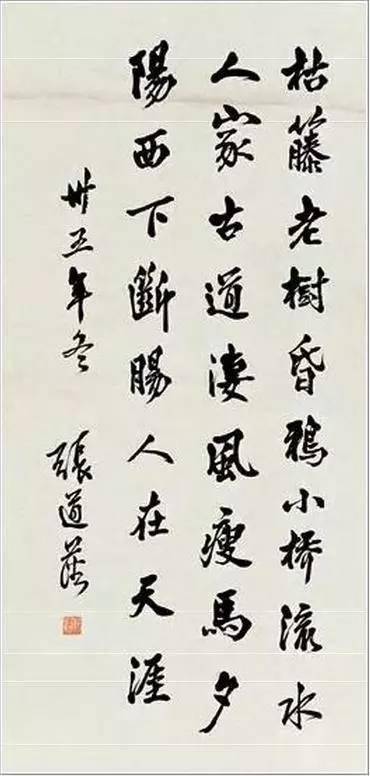 枯籐老樹昏鴉小橋流水
人家古道淒風瘦馬夕
陽西下斷腸人在天涯
卅五年冬 張道藩